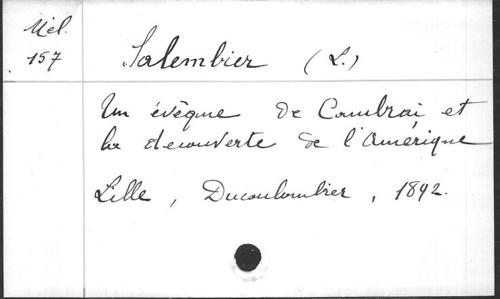 Mél.
157
Salembier (L.)
Un évêque de Cambrai et
la découverte de l'Amérique
Lille, Ducoulombier, 1892.